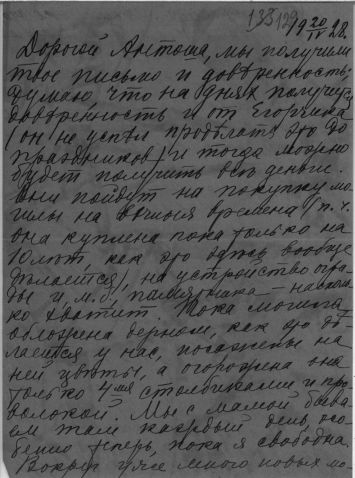 133 129
19 20/IV 28.
Дорогой Антоша, мы получили
твое письмо и довѣренность;
думаю, что на днях получу
довѣренность и от Егорчика
(он не успѣл продѣлать это до
праздников) и тогда можно
будет получить всѣ деньги.
Они пойдут на покупку мо-
гилы на вѣчныя времена (п. ч.
она куплена пока только на
10 лѣт, как это здѣсь вообще
дѣлается), на устройство огра-
ды и м. б. памятника – насколь-
ко хватит. Пока могила
обложена дерном, как это дѣ-
лается у нас, посажены на
ней цвѣты, а огорожена она
только 4мя столбиками и про-
волокой. Мы с мамой быва-
ем там каждый день, осо-
бенно теперь, пока я свободна.
Вокруг уже много новых мо-